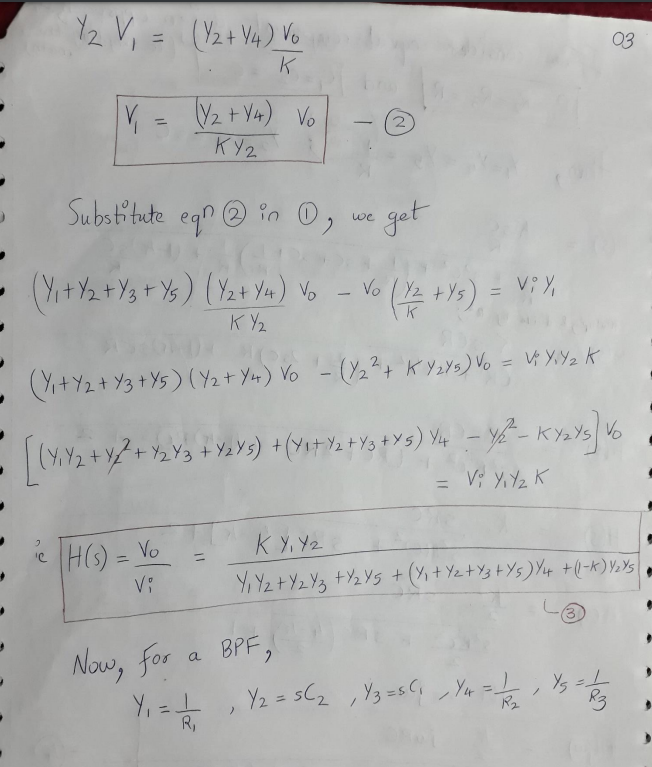 03
Y₂ V₁ = (Y₂ + Y₄) V₀/K
V₁ = (Y₂ + Y₄)/(K Y₂) V₀ — ②
Substitute eqn ② in ①, we get
(Y₁ + Y₂ + Y₃ + Y₅) (Y₂ + Y₄)/(K Y₂) V₀ - V₀ (Y₂/K + Y₅) = Vi Y₁
(Y₁ + Y₂ + Y₃ + Y₅) (Y₂ + Y₄) V₀ - (Y₂² + K Y₂Y₅) V₀ = Vi Y₁Y₂ K
[(Y₁Y₂ + Y₂² + Y₂Y₃ + Y₂Y₅) + (Y₁ + Y₂ + Y₃ + Y₅) Y₄ - Y₂² - K Y₂Y₅] V₀
= Vi Y₁Y₂ K
ie H(s) = V₀/Vi = K Y₁Y₂/(Y₁Y₂ + Y₂Y₃ + Y₂Y₅ + (Y₁ + Y₂ + Y₃ + Y₅)Y₄ + (1-K) Y₂Y₅)
③
Now, for a BPF,
Y₁ = 1/R₁ , Y₂ = sC₂ , Y₃ = sC₁ , Y₄ = 1/R₂ , Y₅ = 1/R₃